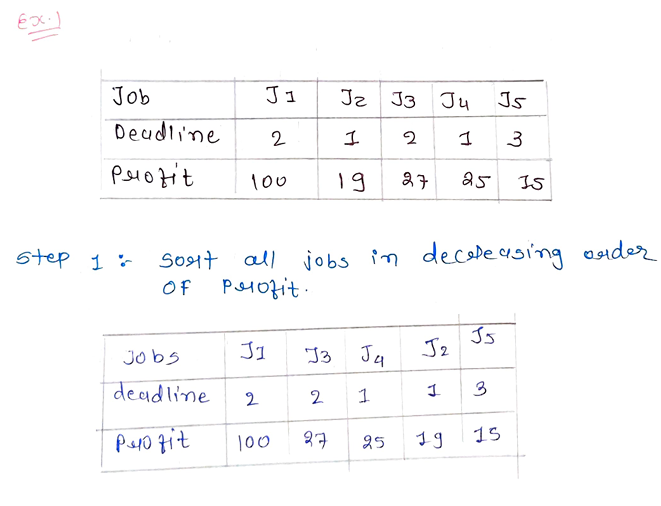 Ex.1
Job J1 J2 J3 J4 J5
Deadline 2 1 2 1 3
Profit 100 19 27 25 15
Step 1 :- Sort all jobs in decreasing order
OF Profit.
jobs J1 J3 J4 J2 J5
deadline 2 2 1 1 3
Profit 100 27 25 19 15